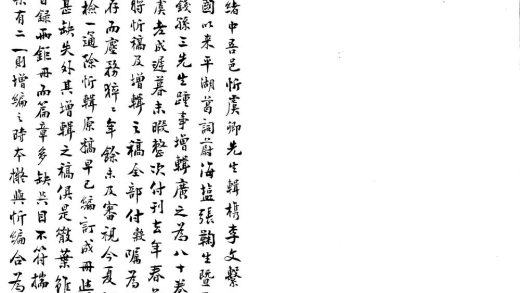 緒中吾邑忻虞卿先生輯檇李文繫
國以来平湖葛詞蔚海塩張鞠生暨
錢孫三先生踵事增輯廣之為八十卷
虞老成遲暮未暇整次付刊去年春
將忻稿及增輯之稿全部付嘱為
存而塵務猝〻年餘未及審視今夏
檢一通除忻輯原稿早已編訂成冊
甚缺失外其增輯之稿俱是散葉雖
目錄兩鉅冊而篇章多缺與目不符揣
有二一則增編之時本擬與忻編合為